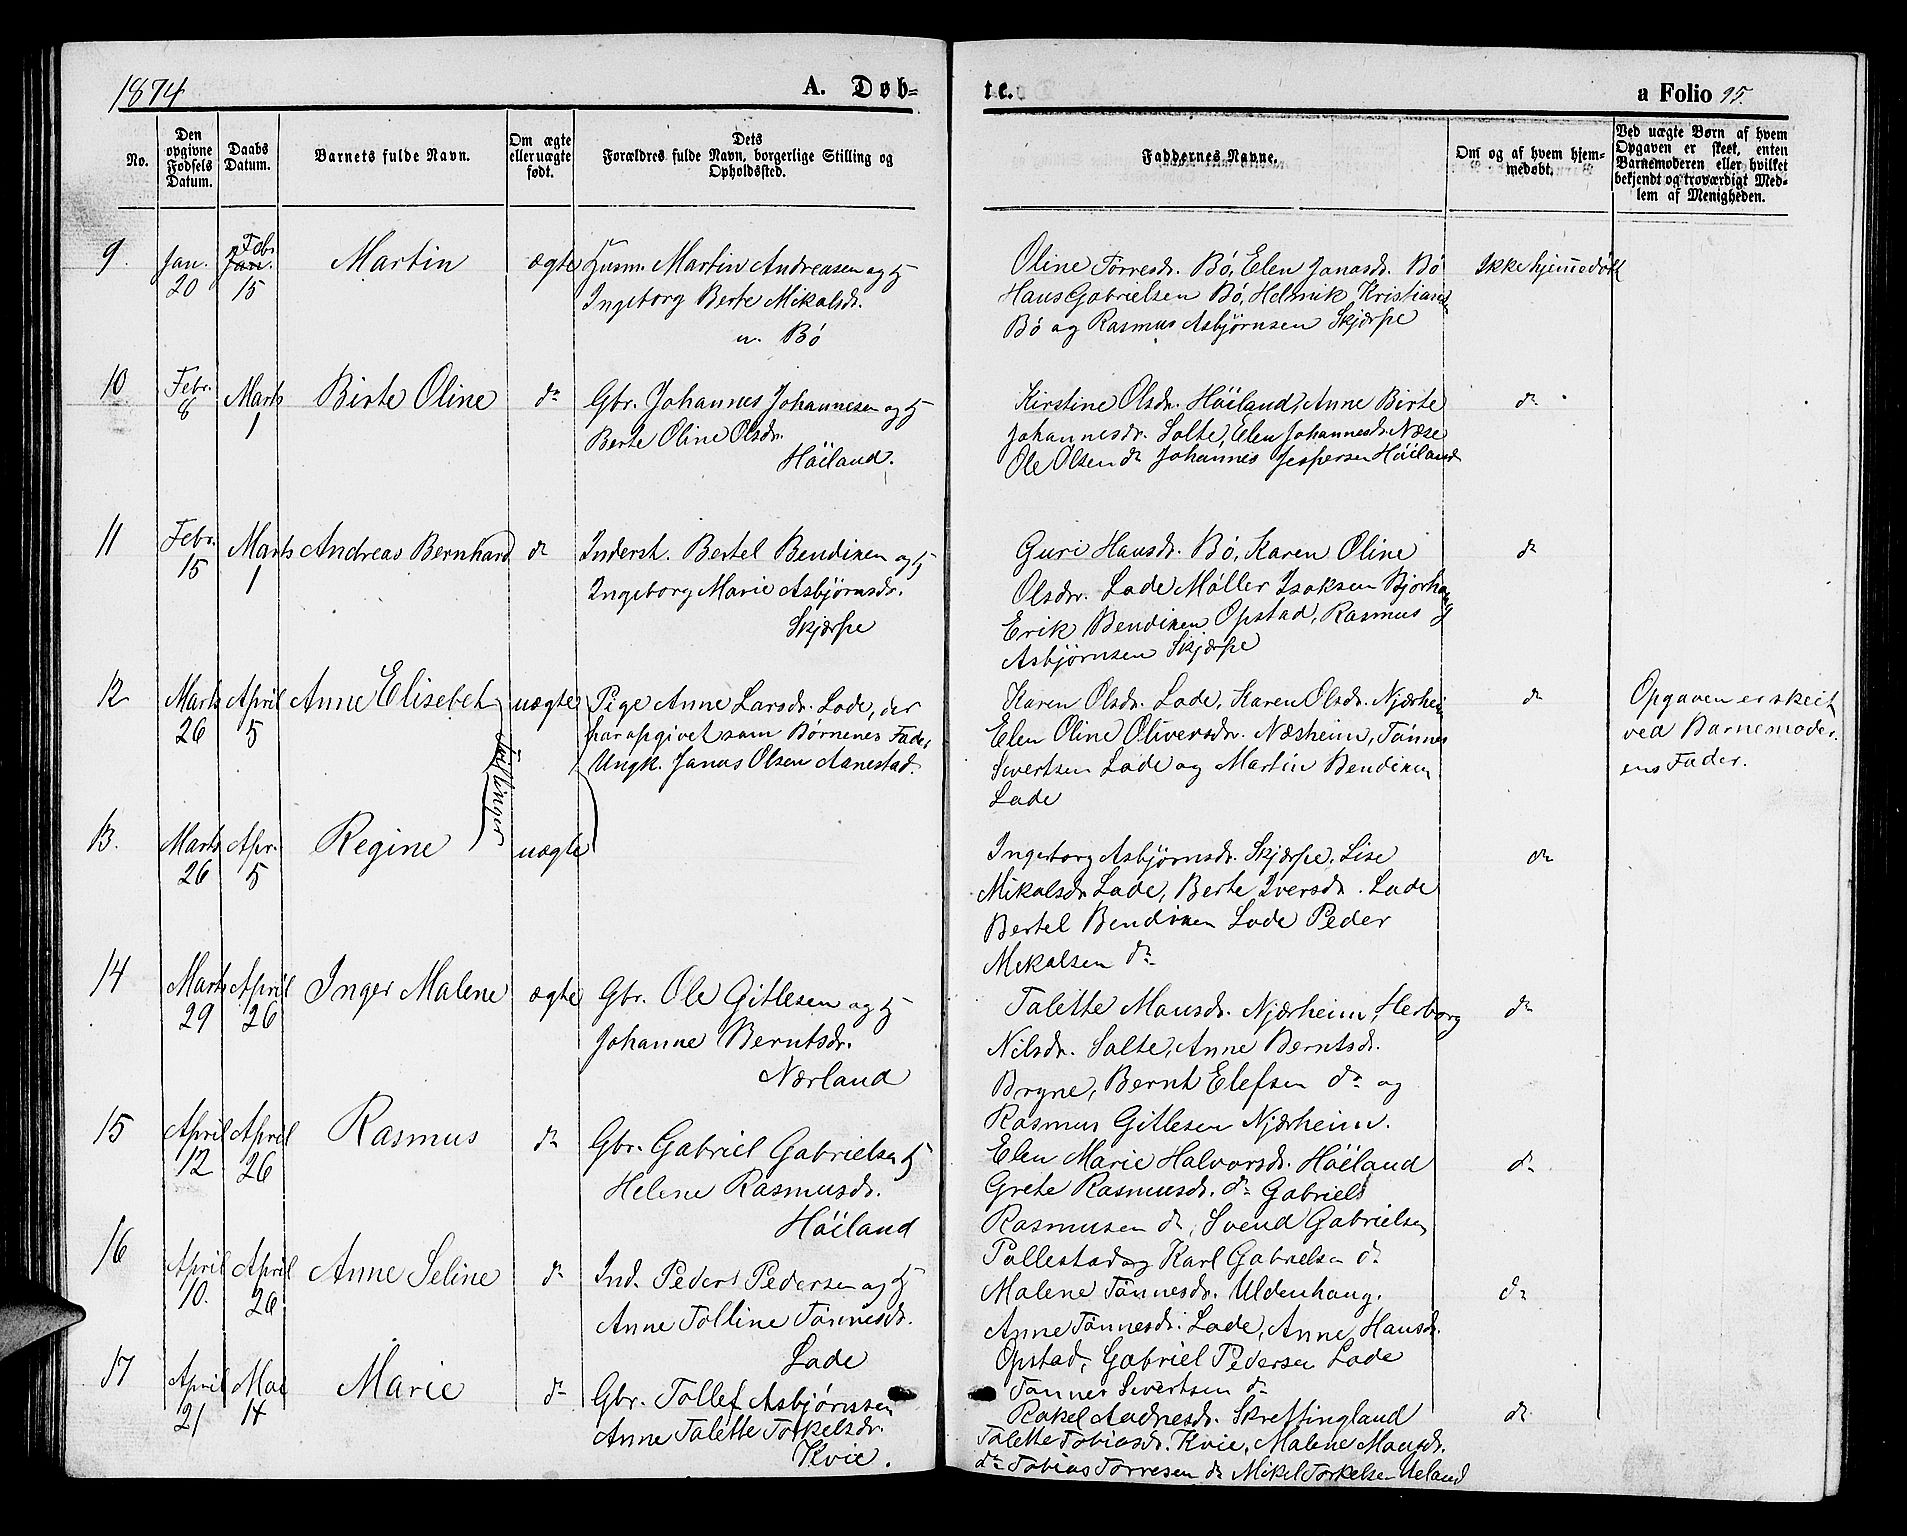 1874
A. Døb-
te.
a Folio 95.
No.
Den opgivne Fødsels Datum.
Daabs Datum.
Barnets fulde Navn.
Om ægte eller uægte født.
Dets Forældres fulde Navn, borgerlige Stilling og Opholdssted.
Faddernes Navne.
Om og af hvem hjemmedøbt.
Ved uægte Børn af hvem Opgaven er skeet, enten Barnemoderen eller hvilket bekjendt og troværdigt Medlem af Menigheden.
9 Jan. 20 Febr. Jan. 15 Martin ægte Husm. Martin Andreasen og H
Ingeborg Berte Mikalsdr.
u. Bö
Oline Torresdr. Bö, Elen Janasdr. Bö
Hans Gabrielsen Bö, Helmik Kristians
Bö og Rasmus Asbjörnsen Skjærpe
Ikke hjemmedöbt
10 Febr. 8 Marts 1 Birte Oline do Gbr. Johannes Johannesen og H
Berte Oline Olsdr.
Höiland.
Kirstine Olsdr. Höiland, Anne Birte
Johannesdr. Salte, Elen Johannesdr. Næse
Ole Olsen do Johannes Jespersen Höiland
do
11 Febr. 15 Marts 1 Andreas Bernhard do Inderst. Bertel Bendixen og H
Ingeborg Marie Asbjörnsdr.
Skjærpe
Guri Hansdr. Bö, Karen Oline
Olsdr. Lade Möller Isaksen Bjorhaug
Erik Bendixen Opstad, Rasmus
Asbjörnsen Skjærpe
do
12 Marts 26 April 5 Anne Elisebet uægte Pige Anne Larsdr. Lode, der
har opgivet som Børnenes Fader
Ungk. Janas Olsen Aanestad.
Tvillinger
Karen Olsdr. Lade, Karen Olsdr. Njærheim
Elen Oline Oliversdr. Næsheim, Tönnes
Sivertsen Lade og Martin Bendixen
Lade
do
Opgaven er skeet
ved Barnemoder.
ens Fader.
13. Marts 26 Apr. 5 Regine uægte
Ingeborg Asbjörnsdr. Skjærpe, Lise
Mikalsdr Lade, Berte Iversdr. Lade
Bertel Bendixen Lode Peder
Mikalsen do
do
14 Marts 29 April 26 Inger Malene ægte Gbr. Ole Gitlesen og H
Johanne Berntsdr.
Nærland
Talette Mausdr. Njærheim, Herborg
Nilsdr. Salte, Anne Berntsdr.
Bryne, Bernt Elefsen do og
Rasmus Gitlesen Njærheim.
do
15 April 12 April 26 Rasmus do Gbr. Gabriel Gabrielsen H
Helene Rasmusdr.
Höiland
Elen Marie Halvorsdr. Höiland
Grete Rasmusdr. do Gabriel
Rasmusen do, Svend Gabrielsen
Pollestad og Karl Gabrielsen do
do
16 April 10. April 26. Anne Seline do Ind. Peder Pedersen og H
Anne Tolline Tönnesdr.
Lade
Malene Tönnesdr. Uldenhaug.
Anne Tönnesdr. Lade, Anne Hansdr.
Opstad, Gabriel Pedersen Lade
Tönnes Sivertsen do
do
17 April 21 Mai 14 Marie do Gbr. Tollef Asbjörnssen
Anne Talette Torkelsdr.
Kvie.
Rakel Aadnesdr. Skrettingland
Talette Tobiasdr. Kvie, Malene Mausdr.
do Tobias Torresen do Mikel Torkelsen Ueland
do